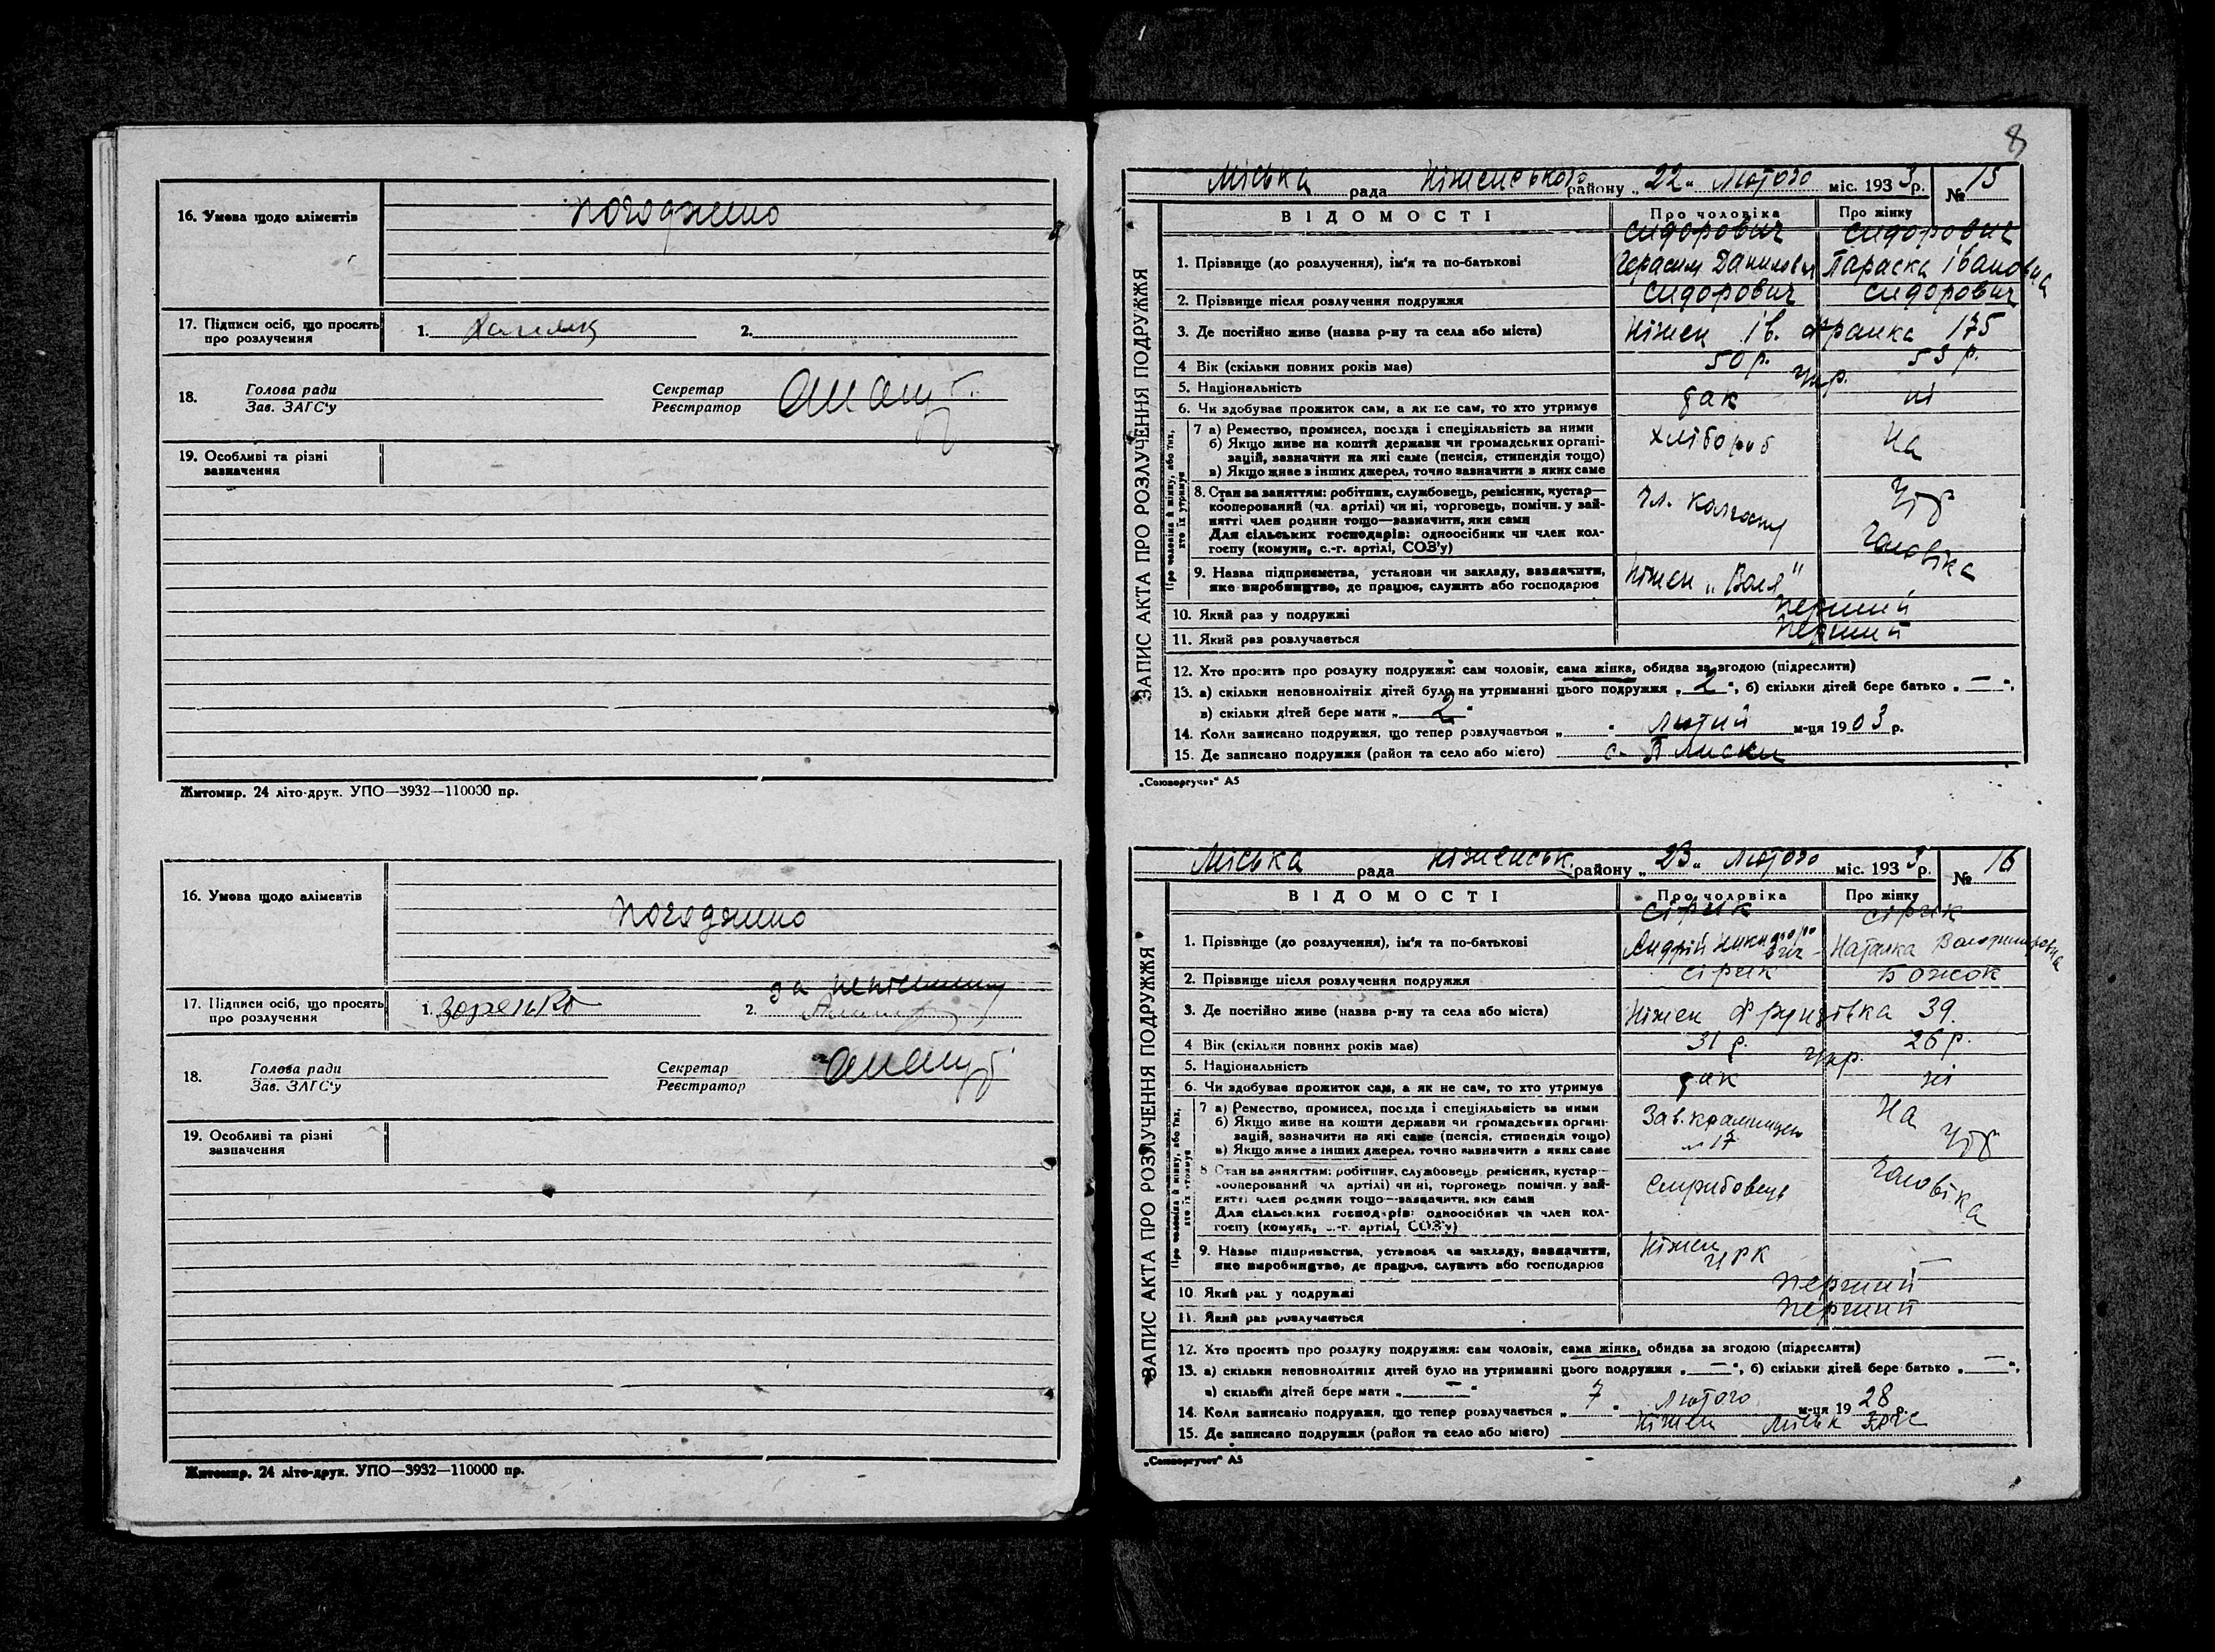 16. Умова щодо аліментів
погоджено
17. Підписи осіб, що просять про розлучення 1. 2.
18. Голова ради Зав. ЗАГС'у Секретар Реєстратор
19. Особливі та різні зазначення
Житомир. 24 літо-друк. УПО—3932—110000 пр.
16. Умова щодо аліментів
погоджено
17. Підписи осіб, що просять про розлучення 1. Зоренко 2. за неписьменну
18. Голова ради Зав. ЗАГС'у Секретар Реєстратор
19. Особливі та різні зазначення
Житомир. 24 літо-друк. УПО—3932—110000 пр.
8
ЗАПИС АКТА ПРО РОЗЛУЧЕННЯ ПОДРУЖЖЯ
Міська рада Ніженського району „22" Лютого міс. 1933 р. № 15
ВІДОМОСТІ Про чоловіка Про жінку
Сидорович Сидорович
1. Прізвище (до розлучення), ім'я та по-батькові Герасим Данилович Параска Івановна
2. Прізвище після розлучення подружжя Сидорович Сидорович
3. Де постійно живе (назва р-ну та села або міста) Ніжен Ів. Франка 175
4 Вік (скільки повних років має) 50 р. 53 р.
5. Національність Укр.
6. Чи здобуває прожиток сам, а як не сам, то хто утримує так ні
Про чоловіка й жінку, або тих, хто їх утримує
7 а) Ремество, промисел, посада і спеціяльність за ними хлібороб На
б) Якщо живе на кошти держави чи громадських організацій, зазначити на які саме (пенсія, стипендія тощо)
в) Якщо живе з інших джерел, точно зазначити з яких саме
8. Стан за заняттям: робітник, службовець, ремісник, кустар—кооперований (чл. артілі) чи ні, торговець, помічн. у занятті член родини тощо—зазначити, яки сами чл. колгоспу утр
Для сільських господарів: одноосібник чи член колгоспу (комуни, с.-г. артілі, СОЗ'у) чоловіка
9. Назва підприємства, установи чи закладу, зазначити, яке виробництво, де працює, служить або господарює Ніжен „Воля"
10. Який раз у подружжі перший
11. Який раз розлучається перший
12. Хто просить про розлуку подружжя: сам чоловік, сама жінка, обидва за згодою (підреслити)
13. а) скільки неповнолітніх дітей було на утриманні цього подружжя „ 2 ", б) скільки дітей бере батько „ — ",
в) скільки дітей бере мати „ 2 "
14. Коли записано подружжя, що тепер розлучається „ " лютий м-ця 1903 р.
15. Де записано подружжя (район та село або місто) с. Плиски
„Союзоргучет" А5
ЗАПИС АКТА ПРО РОЗЛУЧЕННЯ ПОДРУЖЖЯ
Міська рада Ніженськ. району „23" Лютого міс. 1933 р. № 16
ВІДОМОСТІ Про чоловіка Про жінку
Сірик Сірик
1. Прізвище (до розлучення), ім'я та по-батькові Андрій Никифорович Наталка Володимировна
2. Прізвище після розлучення подружжя Сірик Божок
3. Де постійно живе (назва р-ну та села або міста) Ніжен Фрунзівка 39.
4 Вік (скільки повних років має) 31 р. 26 р.
5. Національність Укр.
6. Чи здобуває прожиток сам, а як не сам, то хто утримує так ні
Про чоловіка й жінку, або тих, хто їх утримує
7 а) Ремество, промисел, посада і спеціяльність за ними Зав. крамницею № 17 На
б) Якщо живе на кошти держави чи громадських організацій, зазначити на які саме (пенсія, стипендія тощо) утр
в) Якщо живе з інших джерел, точно зазначити з яких саме
8 Стан за заняттям: робітник, службовець, ремісник, кустар—кооперований (чл артілі) чи ні, торговець помічн. у занятті член родини тощо—зазначити, яки сами чоловіка
Для сільських господарів: одноосібник чи член колгоспу (комуни, с.-г. артілі, СОЗ'у)
9. Назва підприємства, установи чи закладу, зазначити, яке виробництво, де працює, служить або господарює Ніжен ЦРК —
10 Який раз у подружжі перший
11. Який раз розлучається перший
12. Хто просить про розлуку подружжя: сам чоловік, сама жінка, обидва за згодою (підреслити)
13. а) скільки неповнолітніх дітей було на утриманні цього подружжя „ — ", б) скільки дітей бере батько „ — ",
в) скільки дітей бере мати „ — "
14. Коли записано подружжя, що тепер розлучається „ 7 " Лютого м-ця 1928 р.
15. Де записано подружжя (район та село або місто) Ніжен Міськ ЗАГС
„Союзоргучет" А5